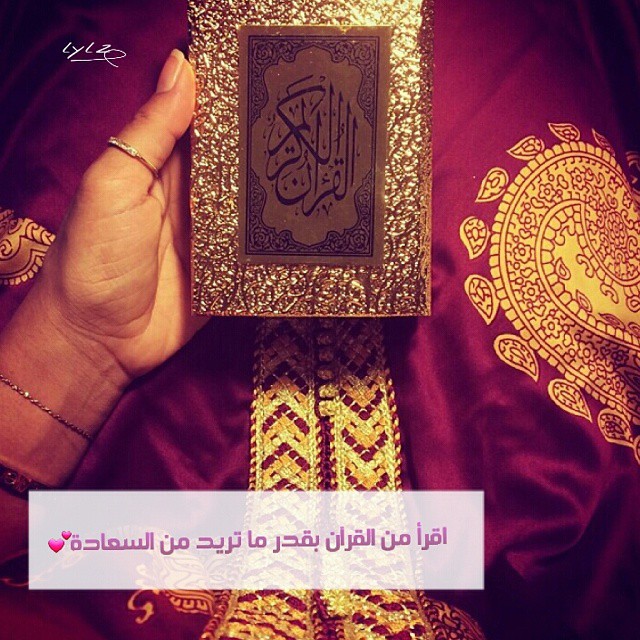 LYLZ
القرآن الكريم
اقرأ من القرآن بقدر ما تريد من السعادة💕